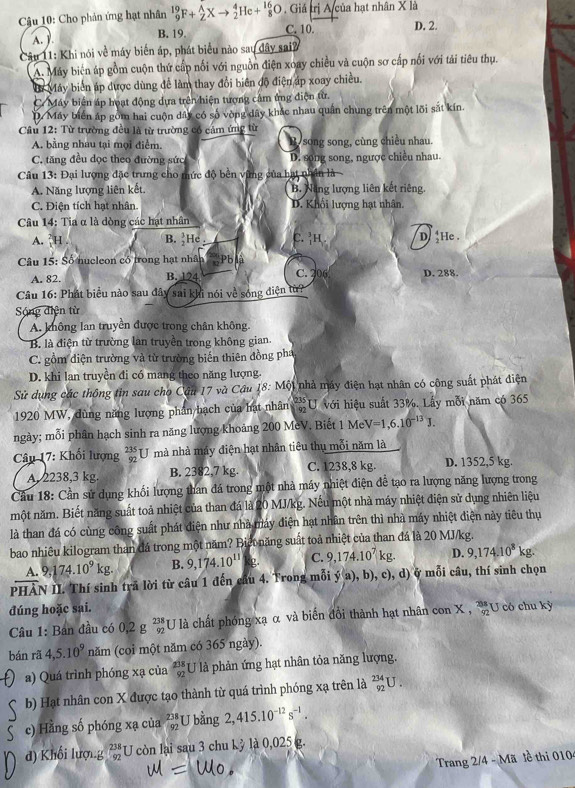 Câu 10: Cho phản ứng hạt nhân ¹⁹₉F + ᴬ_Z X → ⁴₂He + ¹⁶₈O . Giá trị A của hạt nhân X là
A. 1. B. 19. C. 10. D. 2.
Câu 11: Khi nói về máy biến áp, phát biểu nào sau đây sai?
A. Máy biến áp gồm cuộn thứ cấp nối với nguồn điện xoay chiều và cuộn sơ cấp nối với tải tiêu thụ.
B. Máy biến áp được dùng để làm thay đổi biên độ điện áp xoay chiều.
C. Máy biến áp hoạt động dựa trên hiện tượng cảm ứng điện từ.
D. Máy biến áp gồm hai cuộn dây có số vòng dây khác nhau quấn chung trên một lõi sắt kín.
Câu 12: Từ trường đều là từ trường có cảm ứng từ
A. bằng nhau tại mọi điểm. B. song song, cùng chiều nhau.
C. tăng đều dọc theo đường sức. D. song song, ngược chiều nhau.
Câu 13: Đại lượng đặc trưng cho mức độ bền vững của hạt nhân là
A. Năng lượng liên kết. B. Năng lượng liên kết riêng.
C. Điện tích hạt nhân. D. Khối lượng hạt nhân.
Câu 14: Tia α là dòng các hạt nhân
A. H . B. He . C. H . D. ⁴₂He .
Câu 15: Số nucleon có trong hạt nhân Pb là
A. 82. B. 124. C. 206. D. 288.
Câu 16: Phát biểu nào sau đây sai khi nói về sóng điện từ?
Sóng điện từ
A. không lan truyền được trong chân không.
B. là điện từ trường lan truyền trong không gian.
C. gồm điện trường và từ trường biến thiên đồng pha.
D. khi lan truyền đi có mang theo năng lượng.
Sử dụng các thông tin sau cho Câu 17 và Câu 18: Một nhà máy điện hạt nhân có công suất phát điện
1920 MW, dùng năng lượng phân hạch của hạt nhân ²³⁵₉₂U với hiệu suất 33%. Lấy mỗi năm có 365
ngày; mỗi phân hạch sinh ra năng lượng khoảng 200 MeV. Biết 1 MeV=1,6.10⁻¹³ J.
Câu 17: Khối lượng ²³⁵₉₂U mà nhà máy điện hạt nhân tiêu thụ mỗi năm là
A. 2238,3 kg. B. 2382,7 kg. C. 1238,8 kg. D. 1352,5 kg.
Câu 18: Cần sử dụng khối lượng than đá trong một nhà máy nhiệt điện để tạo ra lượng năng lượng trong
một năm. Biết năng suất toả nhiệt của than đá là 20 MJ/kg. Nếu một nhà máy nhiệt điện sử dụng nhiên liệu
là than đá có cùng công suất phát điện như nhà máy điện hạt nhân trên thì nhà máy nhiệt điện này tiêu thụ
bao nhiêu kilogram than đá trong một năm? Biết năng suất toả nhiệt của than đá là 20 MJ/kg.
A. 9,174.10⁹ kg. B. 9,174.10¹¹ kg. C. 9,174.10⁷ kg. D. 9,174.10⁸ kg.
PHẦN II. Thí sinh trả lời từ câu 1 đến câu 4. Trong mỗi ý a), b), c), d) ở mỗi câu, thí sinh chọn
đúng hoặc sai.
Câu 1: Ban đầu có 0,2 g ²³⁸₉₂U là chất phóng xạ α và biến đổi thành hạt nhân con X , ²³⁸₉₂U có chu kỳ
bán rã 4,5.10⁹ năm (coi một năm có 365 ngày).
Đ a) Quá trình phóng xạ của ²³⁸₉₂U là phản ứng hạt nhân tỏa năng lượng.
S b) Hạt nhân con X được tạo thành từ quá trình phóng xạ trên là ²³⁴₉₂U .
S c) Hằng số phóng xạ của ²³⁸₉₂U bằng 2,415.10⁻¹² s⁻¹ .
D d) Khối lượng ²³⁸₉₂U còn lại sau 3 chu kỳ là 0,025 g.
Trang 2/4 - Mã đề thi 010